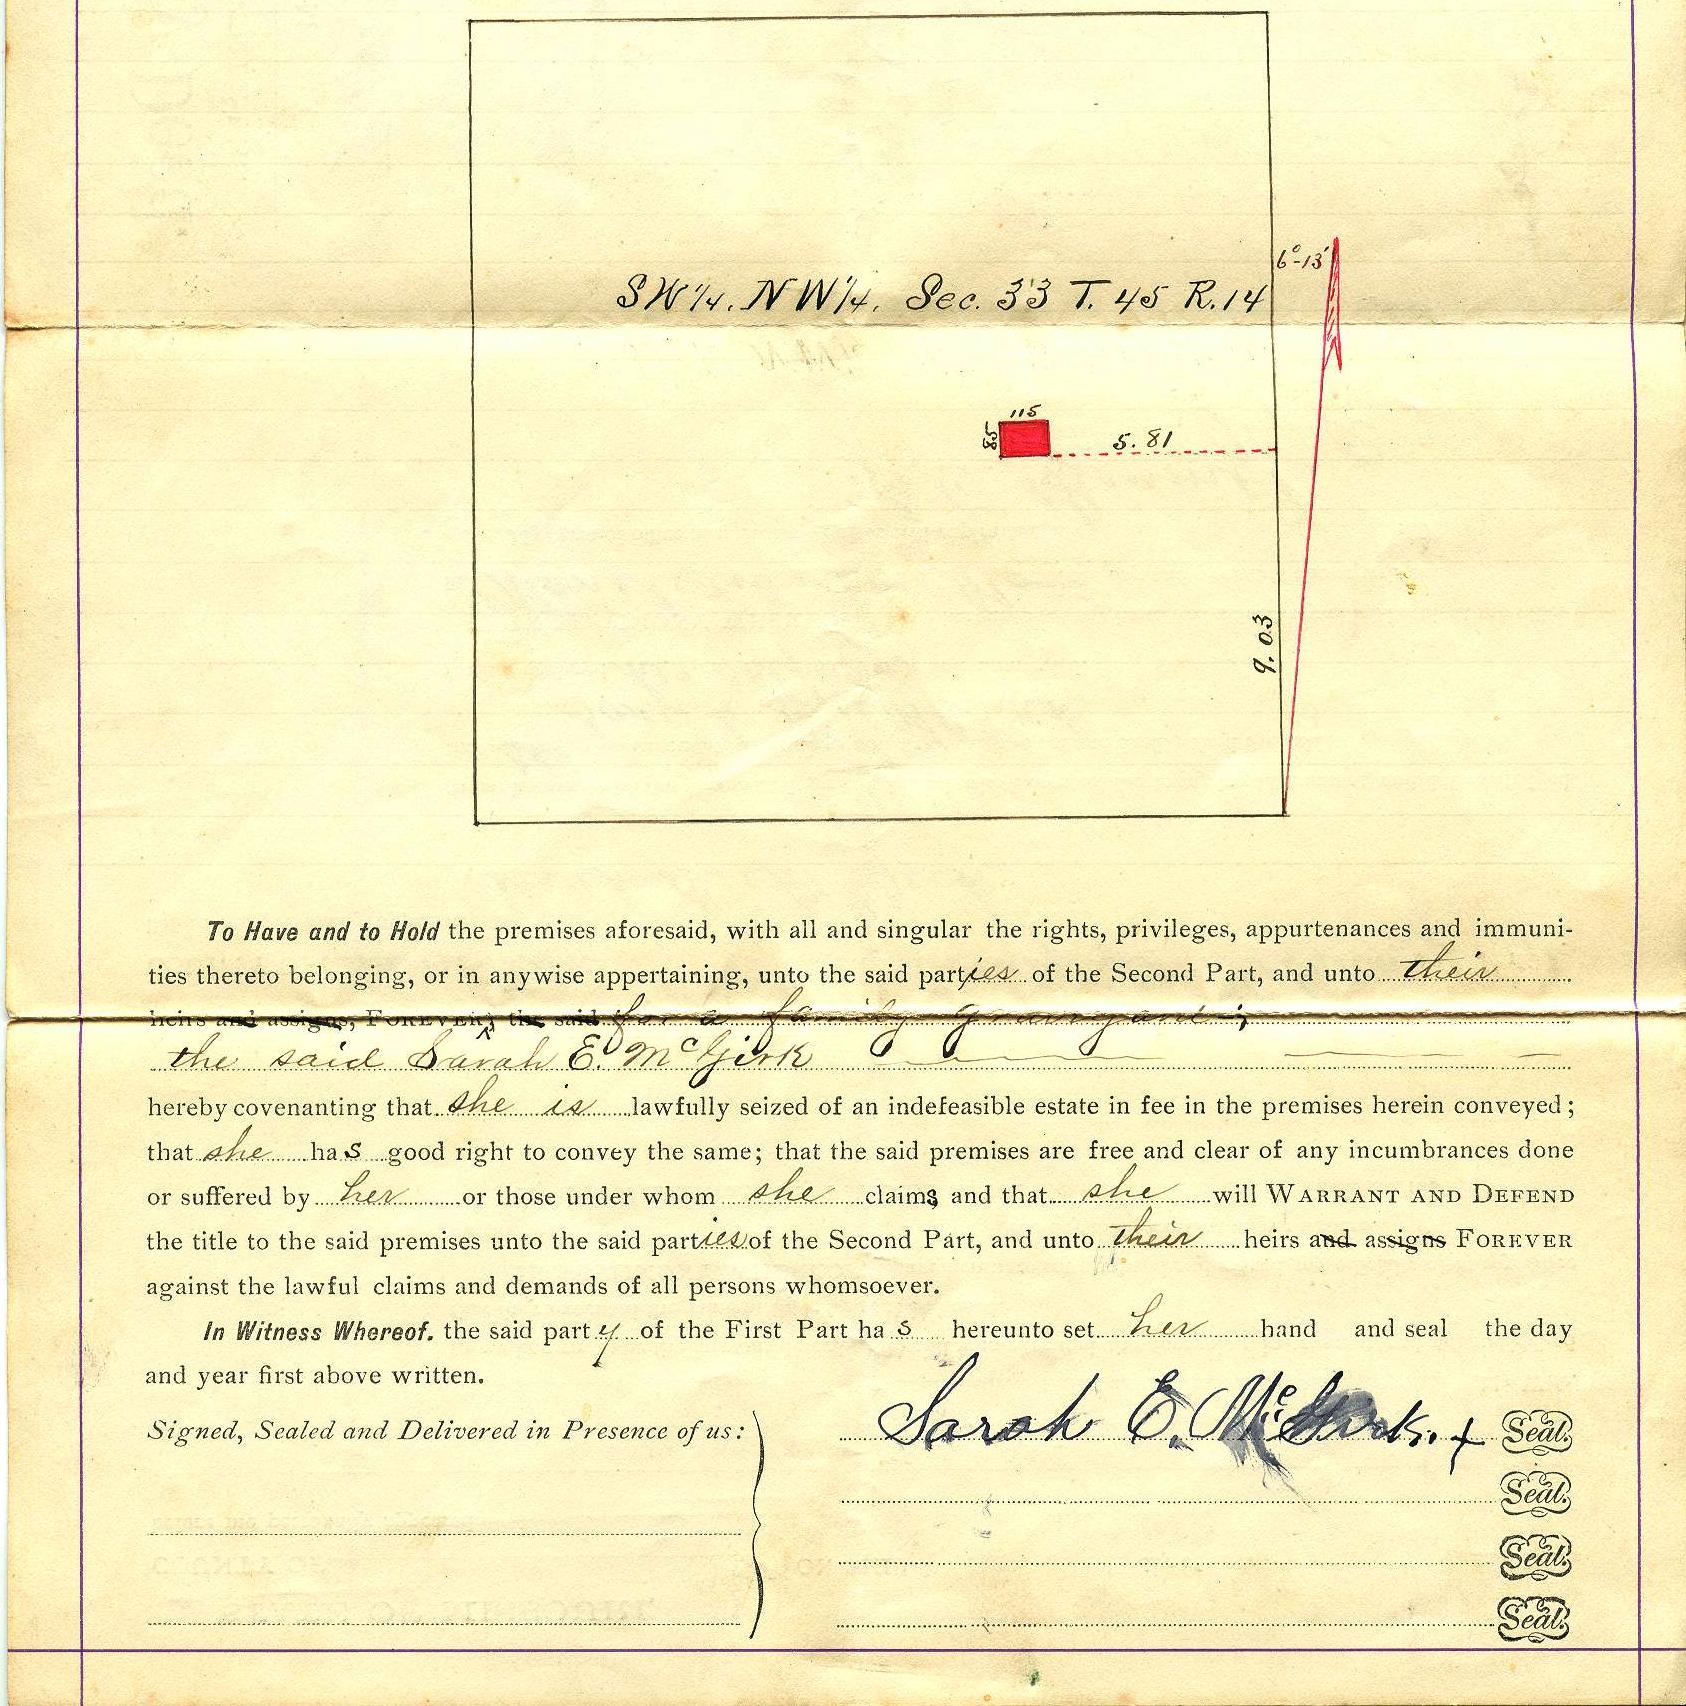 6°-13'
SW 1/4. NW 1/4. Sec. 33 T. 45 R. 14
115
85
5.81
9.03
To Have and to Hold the premises aforesaid, with all and singular the rights, privileges, appurtenances and immuni-
ties thereto belonging, or in anywise appertaining, unto the said parties of the Second Part, and unto their
heirs and assigns, FOREVER; the said for a family graveyard;
the said Sarah E. McGirk
hereby covenanting that she is lawfully seized of an indefeasible estate in fee in the premises herein conveyed;
that she has good right to convey the same; that the said premises are free and clear of any incumbrances done
or suffered by her or those under whom she claims and that she will WARRANT AND DEFEND
the title to the said premises unto the said parties of the Second Part, and unto their heirs and assigns FOREVER
against the lawful claims and demands of all persons whomsoever.
In Witness Whereof. the said party of the First Part has hereunto set her hand and seal the day
and year first above written.
Signed, Sealed and Delivered in Presence of us:
Sarah E. McGirk. x Seal.
Seal.
Seal.
Seal.